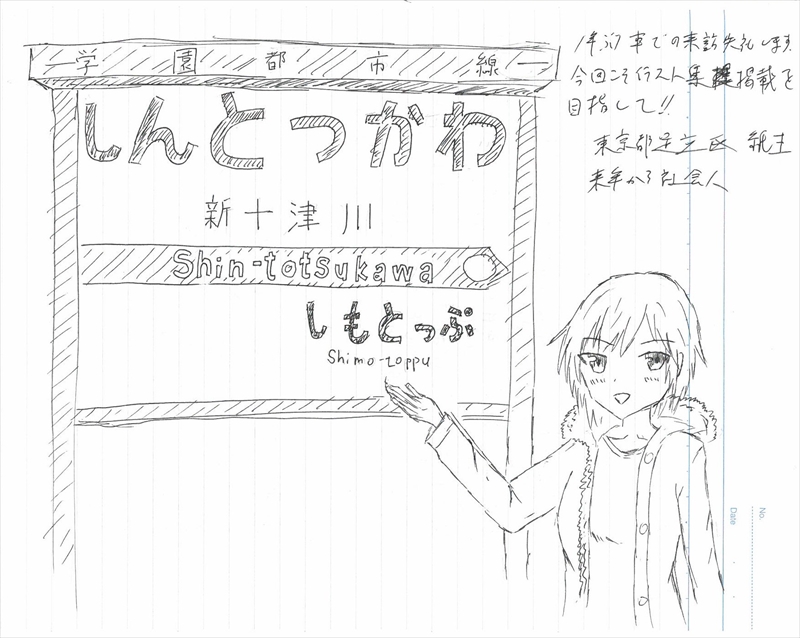 学園都市線
しんとつかわ
新十津川
Shin-totsukawa
しもとっぷ
Shimo-toppu
1年ぶり車での来訪失礼します.
今回こそイラスト集掲載を
目指して!!
東京都足立区
来年から社会人
No.
Date